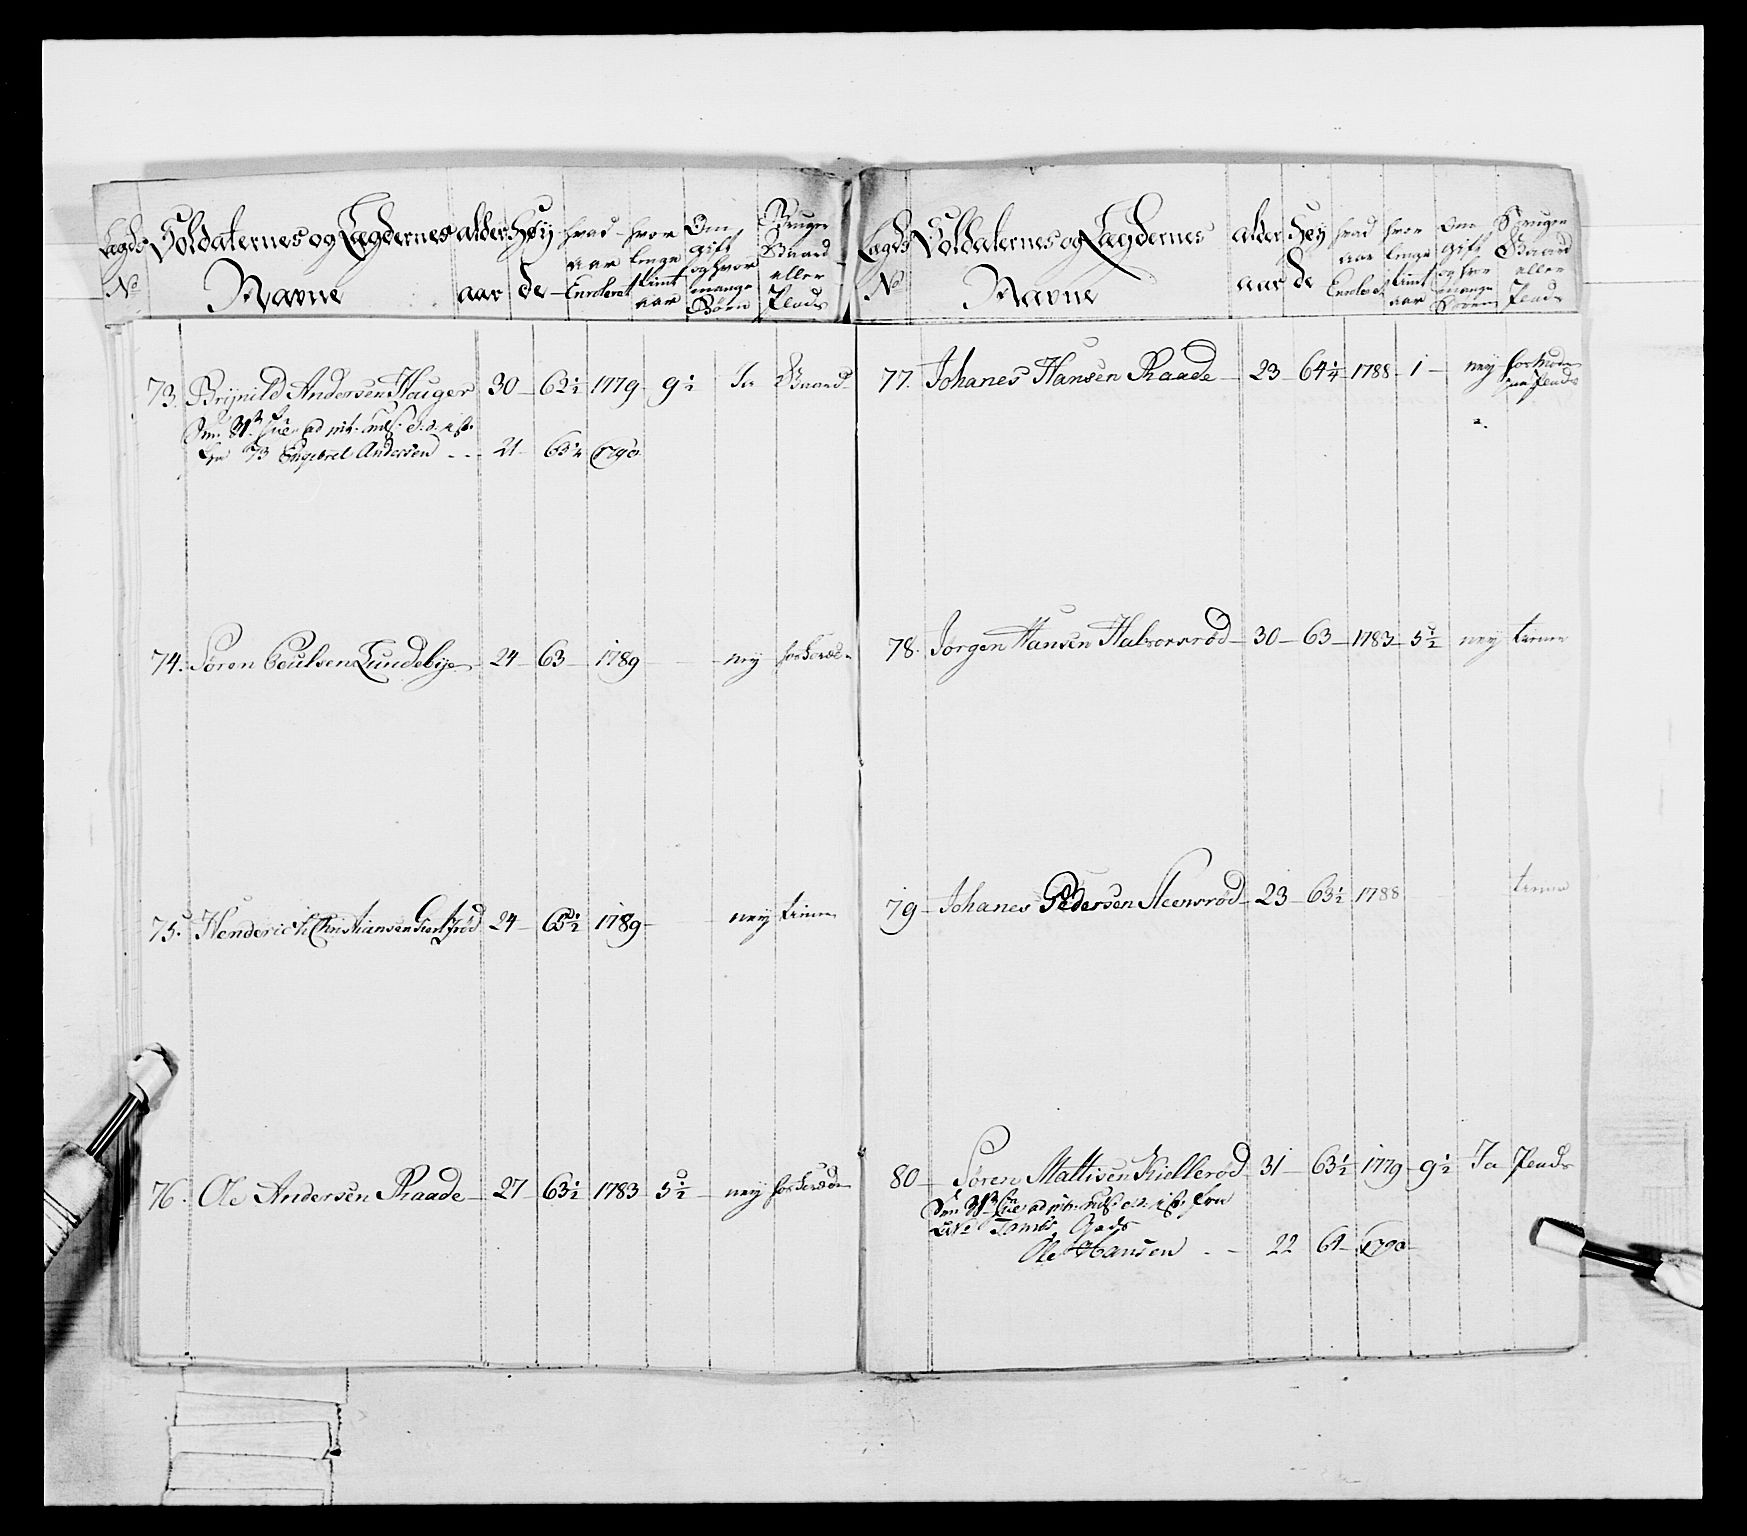 Lægds No
Soldaternes og Lægdernes Navne
alder aar
Høyde
hvad aar Enroleret
hvor lenge tient aar
Om Gift og hvor mange Børn
Bruger Gaard eller Plads
73. Brijnild Andersen Hauger 30 – 62½ 1779 – 9½ Ja Gaard
73 Engebret Andersen – – 21 – 63¼ 1790
74. Søren Poulsen Lundebije – 24 – 63 – 1789 – – neij
75. Henderich Christiansen 24 – 1789 – neij tiener
76. Ole Andersen Raade – 27 – 63½ 1783 5½ – neij
Lægds No
Soldaternes og Lægdernes Navne
alder aar
Høyde
hvad aar Enroleret
hvor lenge tient aar
Om Gift og hvor mange Børn
Bruger Gaard eller Plads
77. Johanes Hansen Raade – 23 – 64¼ 1788 – 1 – neij
78. Jørgen Hansen Halvorsrød – 30 – 63 – 1783 – 5½ neij tiener
79 – Johanes Pedersen Steensrød – 23 – 63½ 1788 tiener
80 – Søren Mattisen Kiellerød 31 – 63½ 1779 – 9½ Ja Plads
Ole Hansen – – 22 64 – 1790 –